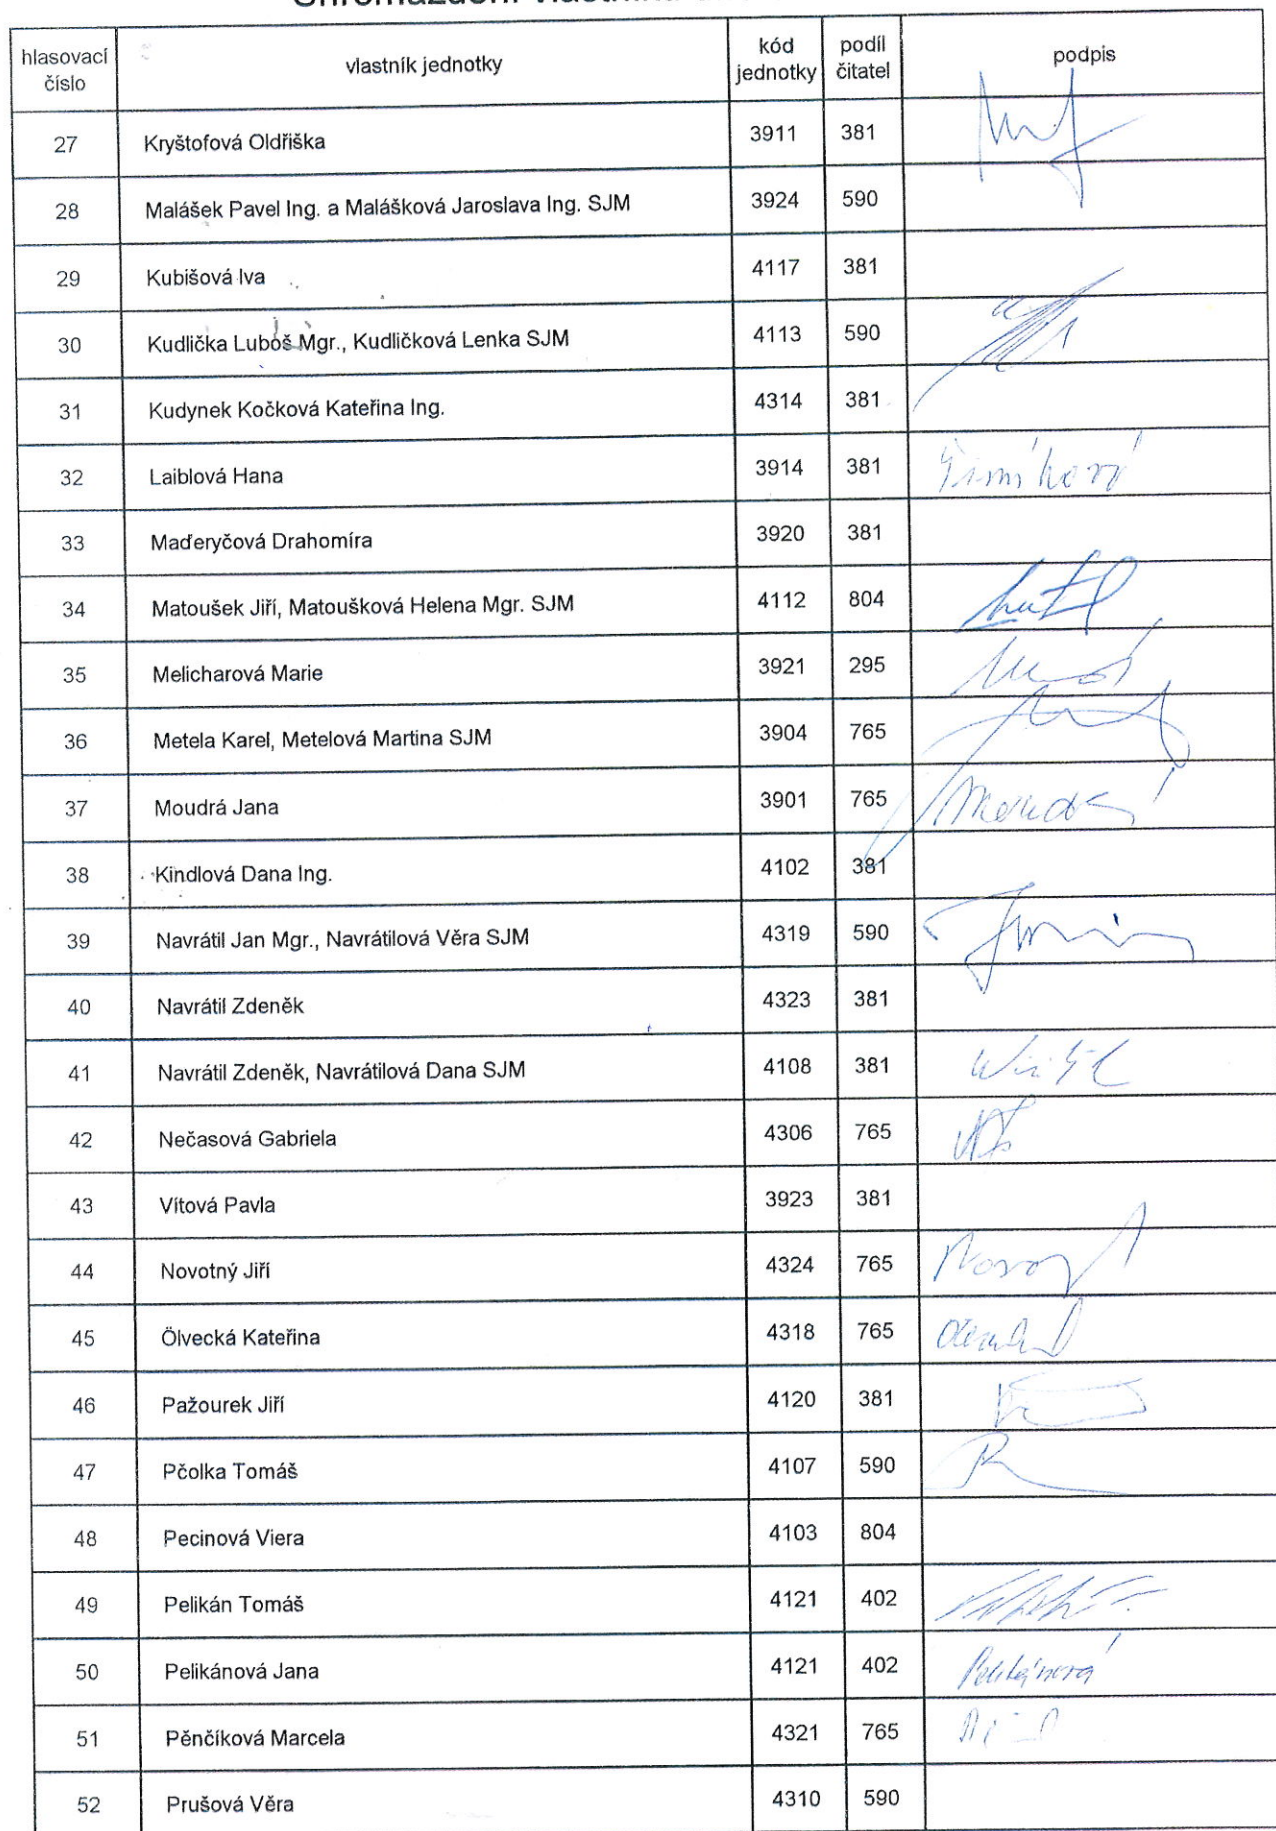 hlasovací číslo vlastník jednotky kód jednotky podíl čitatel podpis
27 Kryštofová Oldřiška 3911 381
28 Malášek Pavel Ing. a Malášková Jaroslava Ing. SJM 3924 590
29 Kubišová Iva 4117 381
30 Kudlička Luboš Mgr., Kudličková Lenka SJM 4113 590
31 Kudynek Kočková Kateřina Ing. 4314 381
32 Laiblová Hana 3914 381
33 Maďeryčová Drahomíra 3920 381
34 Matoušek Jiří, Matoušková Helena Mgr. SJM 4112 804
35 Melicharová Marie 3921 295
36 Metela Karel, Metelová Martina SJM 3904 765
37 Moudrá Jana 3901 765
38 Kindlová Dana Ing. 4102 381
39 Navrátil Jan Mgr., Navrátilová Věra SJM 4319 590
40 Navrátil Zdeněk 4323 381
41 Navrátil Zdeněk, Navrátilová Dana SJM 4108 381
42 Nečasová Gabriela 4306 765
43 Vítová Pavla 3923 381
44 Novotný Jiří 4324 765
45 Ölvecká Kateřina 4318 765
46 Pažourek Jiří 4120 381
47 Pčolka Tomáš 4107 590
48 Pecinová Viera 4103 804
49 Pelikán Tomáš 4121 402
50 Pelikánová Jana 4121 402 Pelikánová
51 Pěnčíková Marcela 4321 765
52 Prušová Věra 4310 590